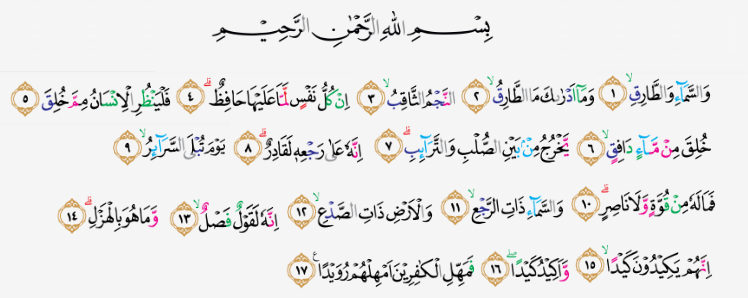 بِسْمِ اللّٰهِ الرَّحْمٰنِ الرَّحِيْمِ
وَالسَّمَاۤءِ وَالطَّارِقِۙ ١ وَمَآ اَدْرٰىكَ مَا الطَّارِقُۙ ٢ النَّجْمُ الثَّاقِبُۙ ٣ اِنْ كُلُّ نَفْسٍ لَّمَّا عَلَيْهَا حَافِظٌۗ ٤ فَلْيَنْظُرِ الْاِنْسَانُ مِمَّ خُلِقَ ٥
خُلِقَ مِنْ مَّاۤءٍ دَافِقٍۙ ٦ يَّخْرُجُ مِنْۢ بَيْنِ الصُّلْبِ وَالتَّرَاۤىِٕبِۗ ٧ اِنَّهٗ عَلٰى رَجْعِهٖ لَقَادِرٌۗ ٨ يَوْمَ تُبْلَى السَّرَاۤىِٕرُۙ ٩
فَمَا لَهٗ مِنْ قُوَّةٍ وَّلَا نَاصِرٍۗ ١٠ وَالسَّمَاۤءِ ذَاتِ الرَّجْعِۙ ١١ وَالْاَرْضِ ذَاتِ الصَّدْعِۙ ١٢ اِنَّهٗ لَقَوْلٌ فَصْلٌۙ ١٣ وَّمَا هُوَ بِالْهَزْلِۗ ١٤
اِنَّهُمْ يَكِيْدُوْنَ كَيْدًاۙ ١٥ وَّاَكِيْدُ كَيْدًاۖ ١٦ فَمَهِّلِ الْكٰفِرِيْنَ اَمْهِلْهُمْ رُوَيْدًا ࣖ ١٧